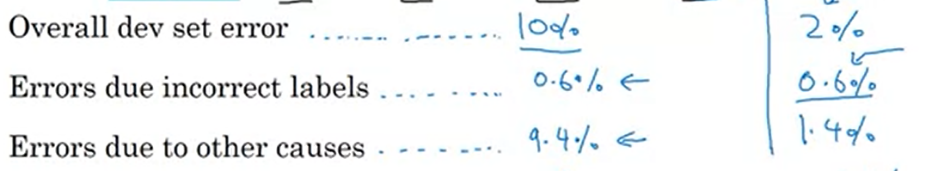 Overall dev set error ........ ........ 10% 2%
Errors due incorrect labels ........ 0.6% ← 0.6%
Errors due to other causes ........ 9.4% ← 1.4%